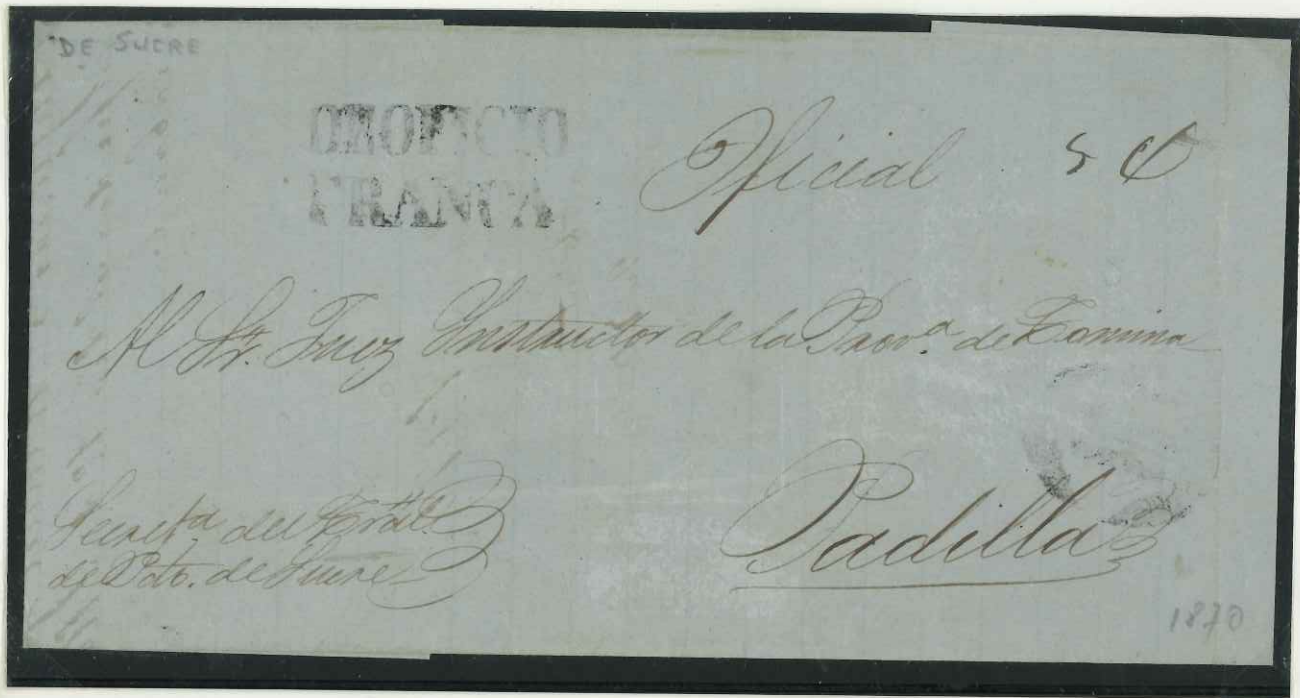 DE SUCRE
OROFICIO
FRANCA
Oficial 5 ¢
Al Sr. Juez Instructor de la Prova. de Tomina
Padilla
Secreta. del Tral.
de Pdo. de Sucre
1870